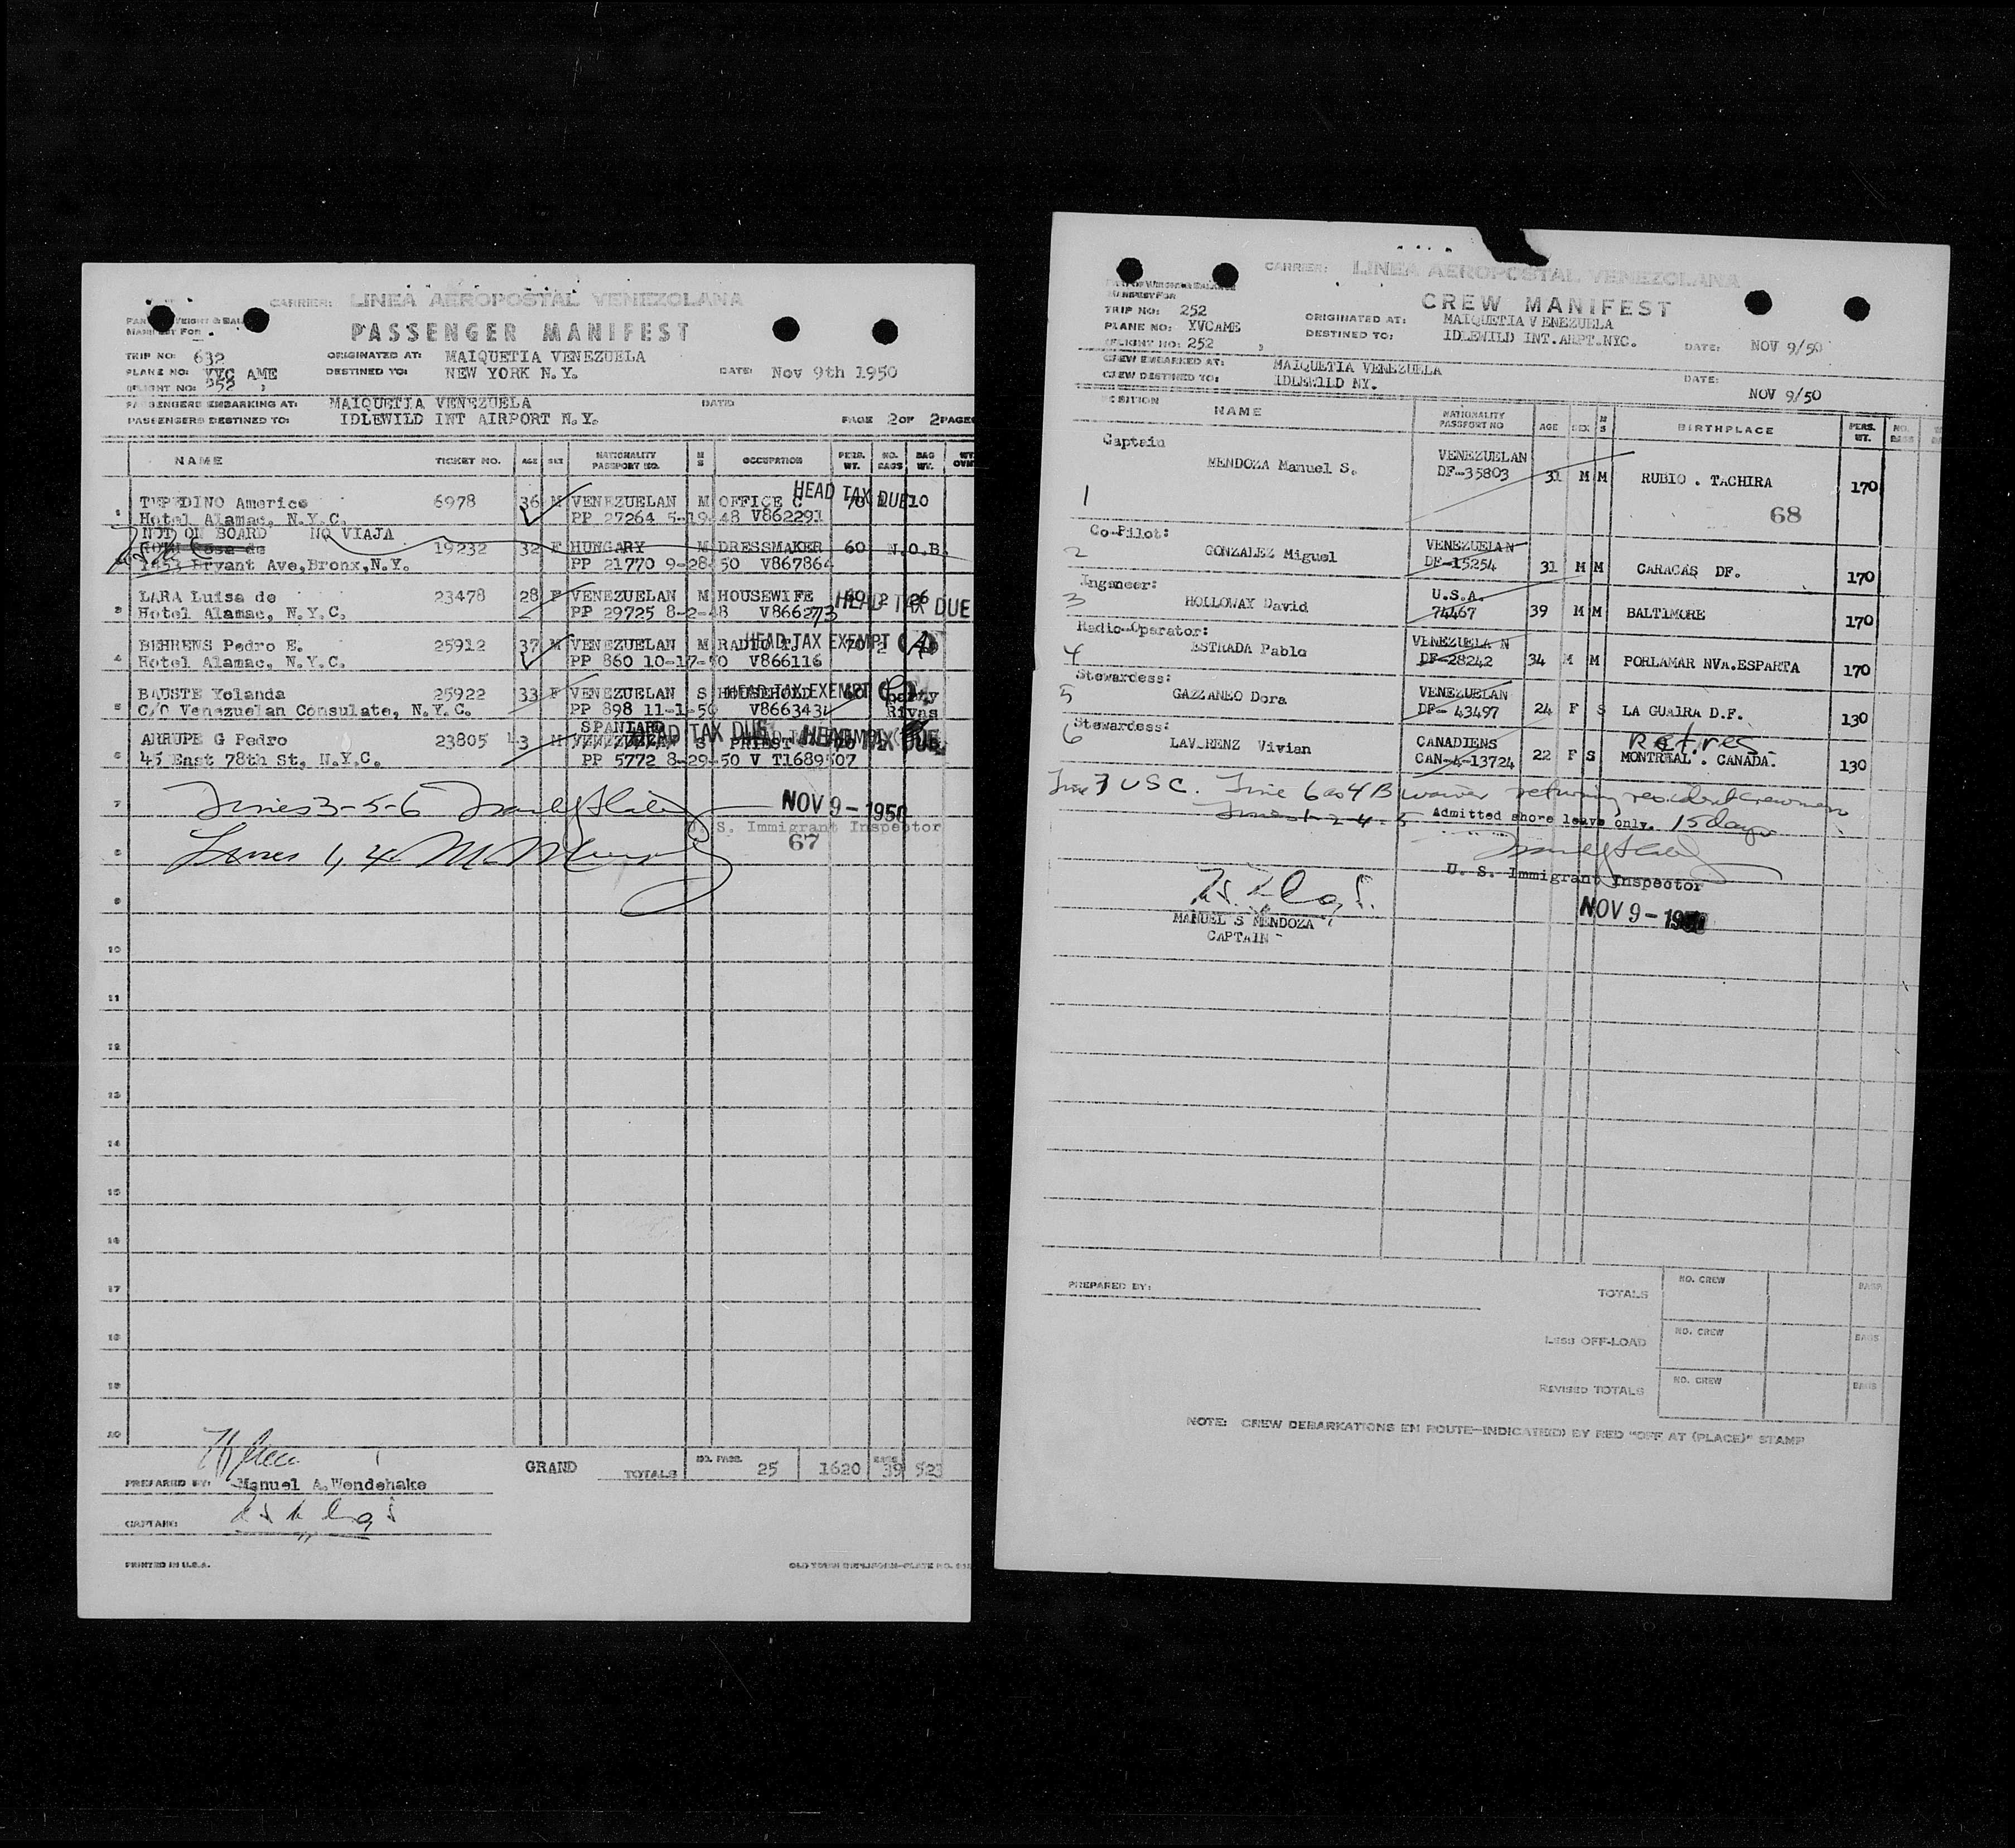 CARRIER: LINEA AEROPOSTAL VENEZOLANA
PASSENGER MANIFEST
TRIP NO: 632 ORIGINATED AT: MAIQUETIA VENEZUELA
PLANE NO: YVC AME DESTINED TO: NEW YORK N.Y. DATE: Nov 9th 1950
(FLIGHT NO: 252 )
PASSENGERS EMBARKING AT: MAIQUETIA VENEZUELA DATE:
PASSENGERS DESTINED TO: IDLEWILD INT AIRPORT N.Y. PAGE 2 OF 2 PAGES
NAME TICKET NO. AGE SEX NATIONALITY PASSPORT NO. M S OCCUPATION PERS. WT. NO. BAGS BAG WT.
HEAD TAX DUE
1 TEPEDINO Americo 6978 36 M VENEZUELAN M OFFICE C 70 10
Hotel Alamac, N.Y.C. PP 27264 5-19-48 V862291
NOT ON BOARD NO VIAJA
ROTH Rosa de 19232 32 F HUNGARY M DRESSMAKER 60 N.O.B.
1453 Bryant Ave, Bronx, N.Y. PP 21770 9-28-50 V867864
LARA Luisa de 23478 28 F VENEZUELAN M HOUSEWIFE 60 2 26
3 Hotel Alamac, N.Y.C. PP 29725 8-2-48 V866273 HEAD TAX DUE
BEHRENS Pedro E. 25912 37 M VENEZUELAN M RADIO T. HEAD TAX EXEMPT 70 2
4 Hotel Alamac, N.Y.C. PP 860 10-17-50 V866116
BAUSTE Yolanda 25922 33 F VENEZUELAN S HOUSEHOLD HEAD TAX EXEMPT 60
5 C/O Venezuelan Consulate, N.Y.C. PP 898 11-1-50 V8663434 Rivas
SPANIARD HEAD TAX DUE
ARRUPE G Pedro 23805 43 M S PRIEST 70
6 45 East 78th St, N.Y.C. PP 5772 8-29-50 V T1689507
7 Lines 3-5-6 NOV 9 - 1950
U. S. Immigrant Inspector
67
8 Lines 1, 4
9
10
11
12
13
14
15
16
17
18
19
20
GRAND TOTALS NO. PASS. 25 1620 BAGS 39 523
PREPARED BY: Manuel A. Wendehake
CAPTAIN:
PRINTED IN U.S.A.
CARRIER: LINEA AEROPOSTAL VENEZOLANA
CREW MANIFEST
MANIFEST FOR
TRIP NO: 252 ORIGINATED AT: MAIQUETIA VENEZUELA
PLANE NO: YVCAME DESTINED TO: IDLEWILD INT.ARPT.NYC. DATE: NOV 9/50
(FLIGHT NO: 252 )
CREW EMBARKED AT: MAIQUETIA VENEZUELA
CREW DESTINED TO: IDLEWILD NY. DATE: NOV 9/50
POSITION NAME NATIONALITY PASSPORT NO AGE SEX M S BIRTHPLACE PERS. WT. NO. BAGS
Captain
1 MENDOZA Manuel S. VENEZUELAN DF-35803 31 M M RUBIO . TACHIRA 170
68
Co-Pilot:
2 GONZALEZ Miguel VENEZUELAN DF-15254 31 M M CARACAS DF. 170
Ingeneer:
3 HOLLOWAY David U.S.A. 74467 39 M M BALTIMORE 170
Radio-Operator:
4 ESTRADA Pablo VENEZUELAN DF-28242 34 M M PORLAMAR NVA.ESPARTA 170
Stewardess:
5 GAZZANEO Dora VENEZUELAN DF- 43497 24 F S LA GUAIRA D.F. 130
Stewardess:
6 LAVORENZ Vivian CANADIENS CAN-4-13724 22 F S MONTREAL . CANADA. 130
Line 3 USC. Line 6 as 4B waiver returning resident crewman
Lines 1-2-4-5 Admitted shore leave only. 15 days
U. S. Immigrant Inspector
NOV 9 - 1950
MANUEL S MENDOZA
CAPTAIN
PREPARED BY: TOTALS NO. CREW BAGS
LESS OFF-LOAD NO. CREW BAGS
REVISED TOTALS NO. CREW BAGS
NOTE: CREW DEBARKATIONS EN ROUTE-INDICATED) BY RED "OFF AT (PLACE)" STAMP